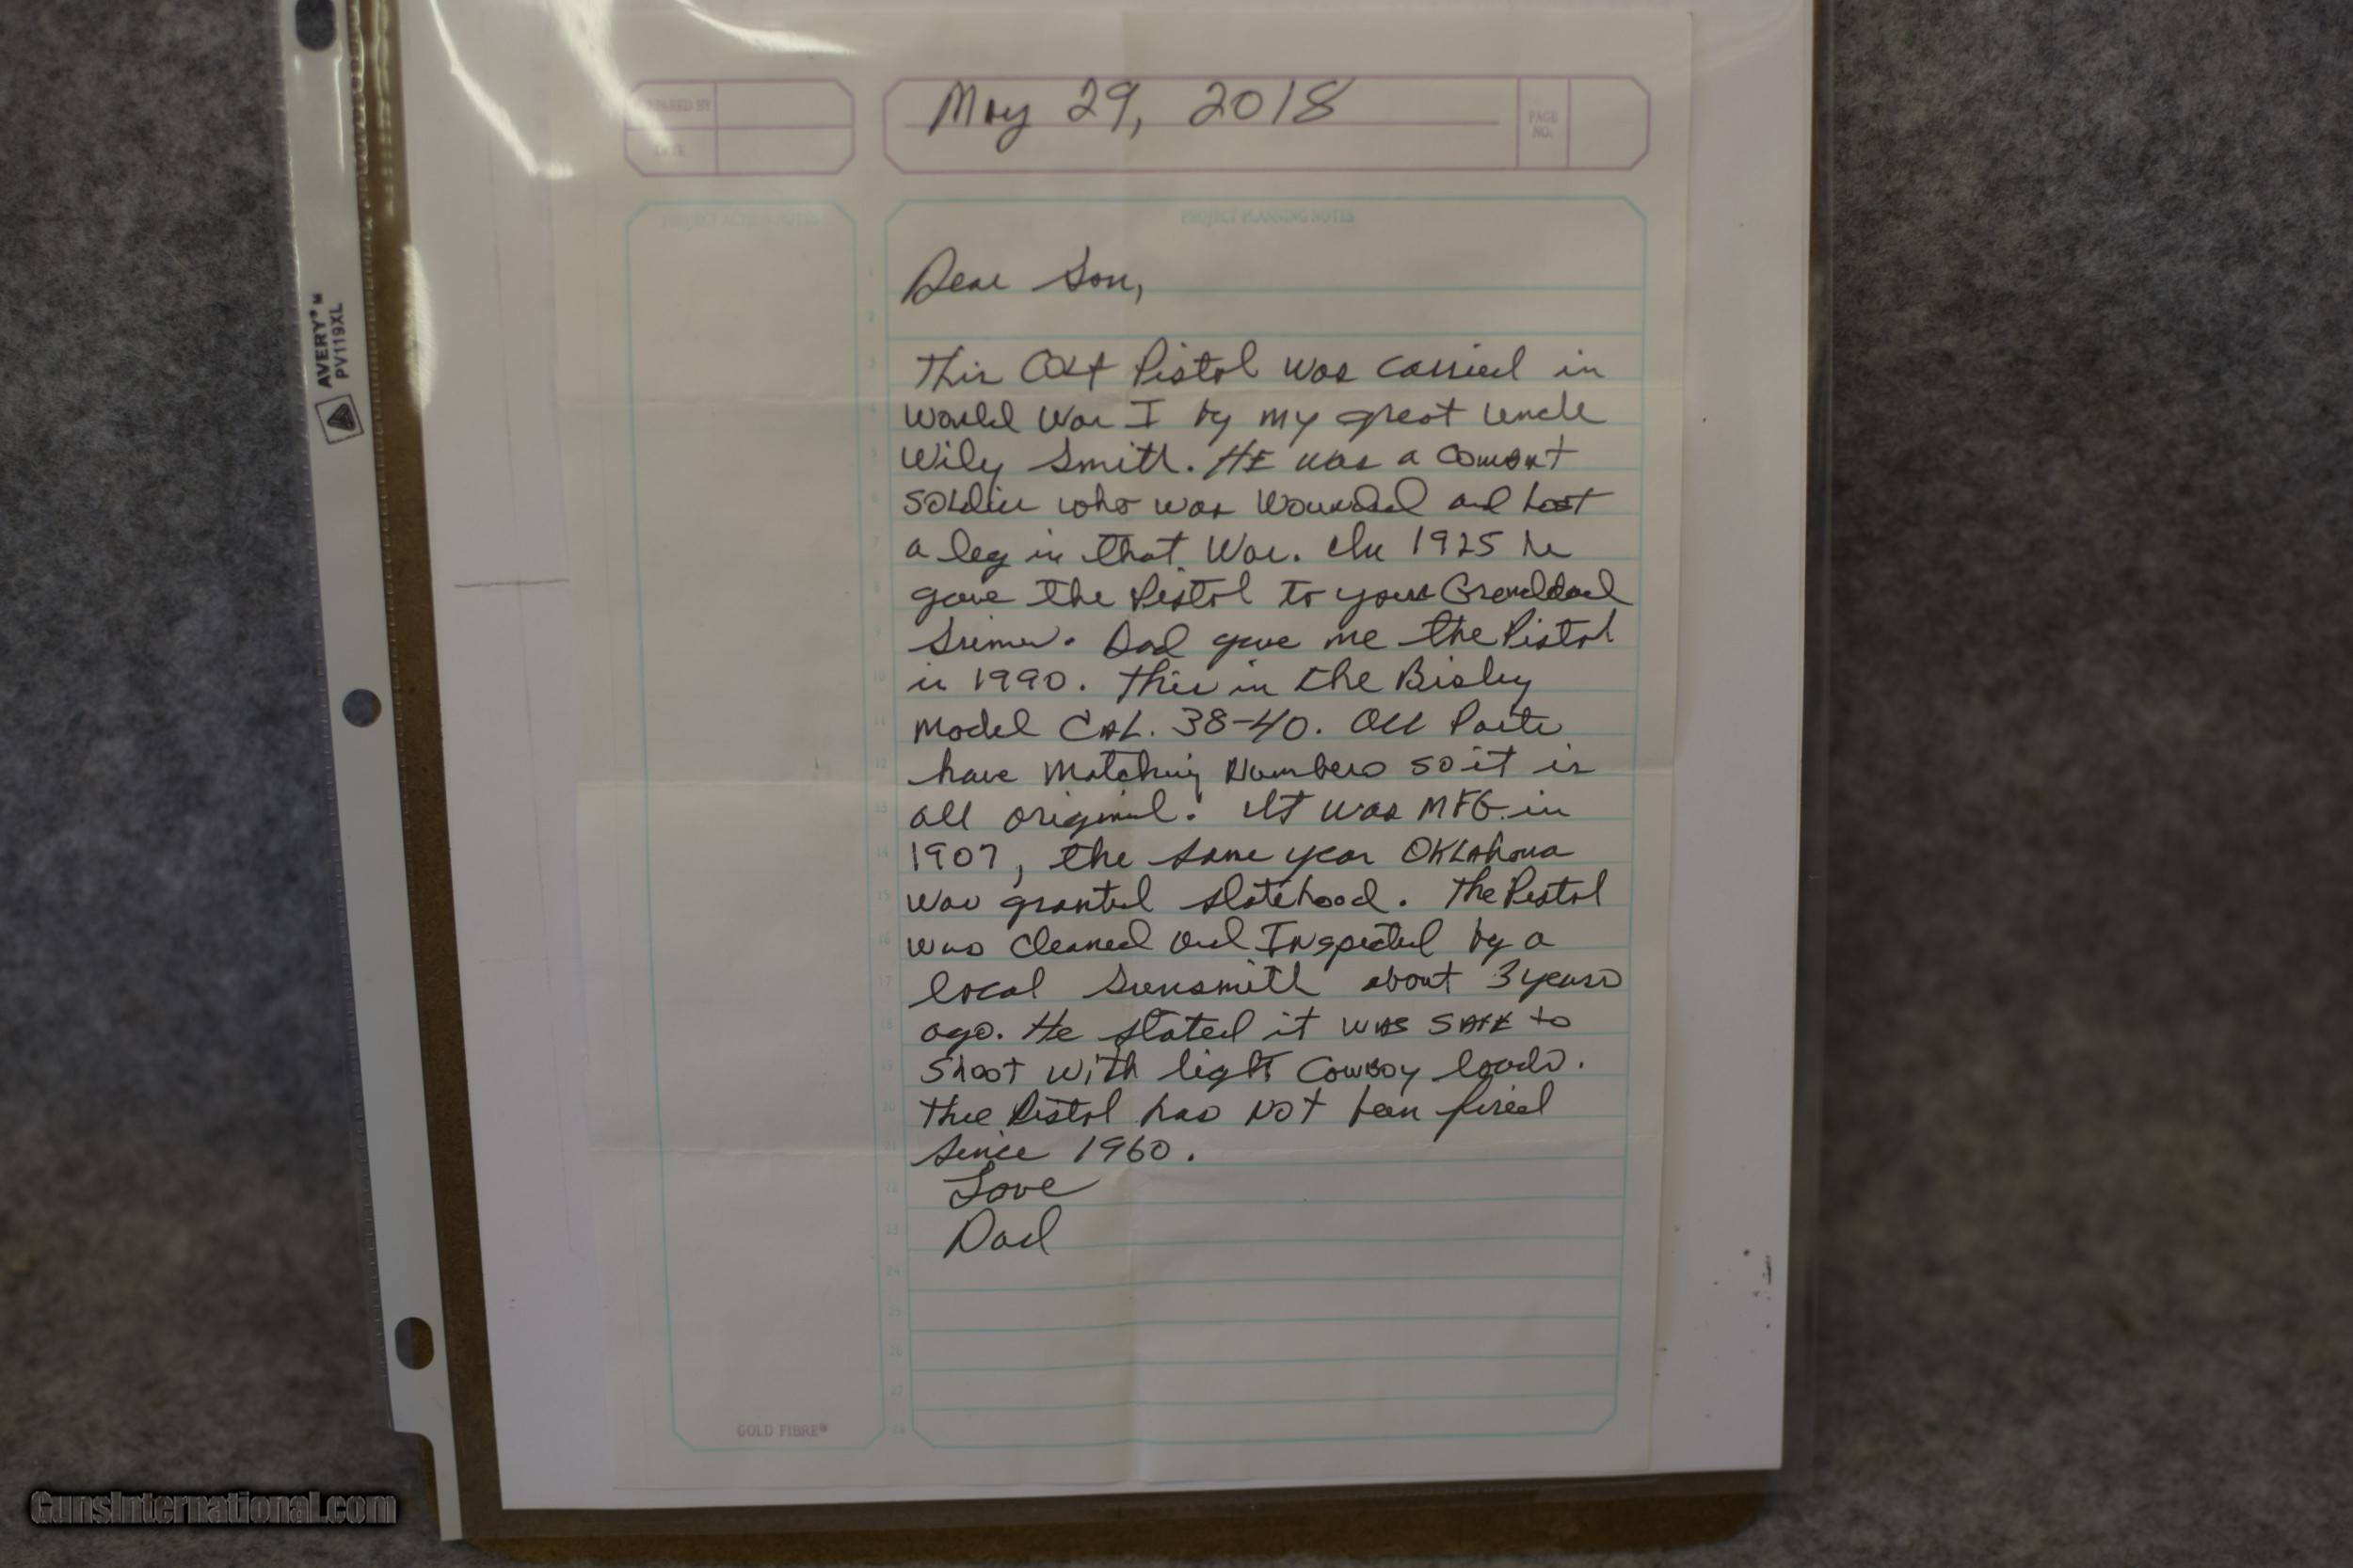 PREPARED BY
DATE
May 29, 2018
PAGE
NO.
PROJECT ACTION NOTES
PROJECT PLANNING NOTES
AVERY™
PV119XL
Dear Son,
This Colt Pistol was carried in
World War I by my great uncle
Wily Smith. HE was a
soldier who was wounded and Lost
a leg in that War. In 1925 he
gave the Pistol to your Granddad
Dad gave me the Pistol
in 1990. This is the Bisley
Model CAL. 38-40. All Parts
have Matching Numbers so it is
all original. It was MFG. in
1907, the same year OKLAhoma
was granted statehood. The Pistol
was cleaned and Inspected by a
local Gunsmith about 3 years
ago. He stated it was SAFE to
shoot with light Cowboy loads.
The Pistol has Not been fired
since 1960.
Love
Dad
1
2
3
4
5
6
7
8
9
10
11
12
13
14
15
16
17
18
19
20
21
22
23
24
25
26
27
28
GOLD FIBRE®
GunsInternational.com